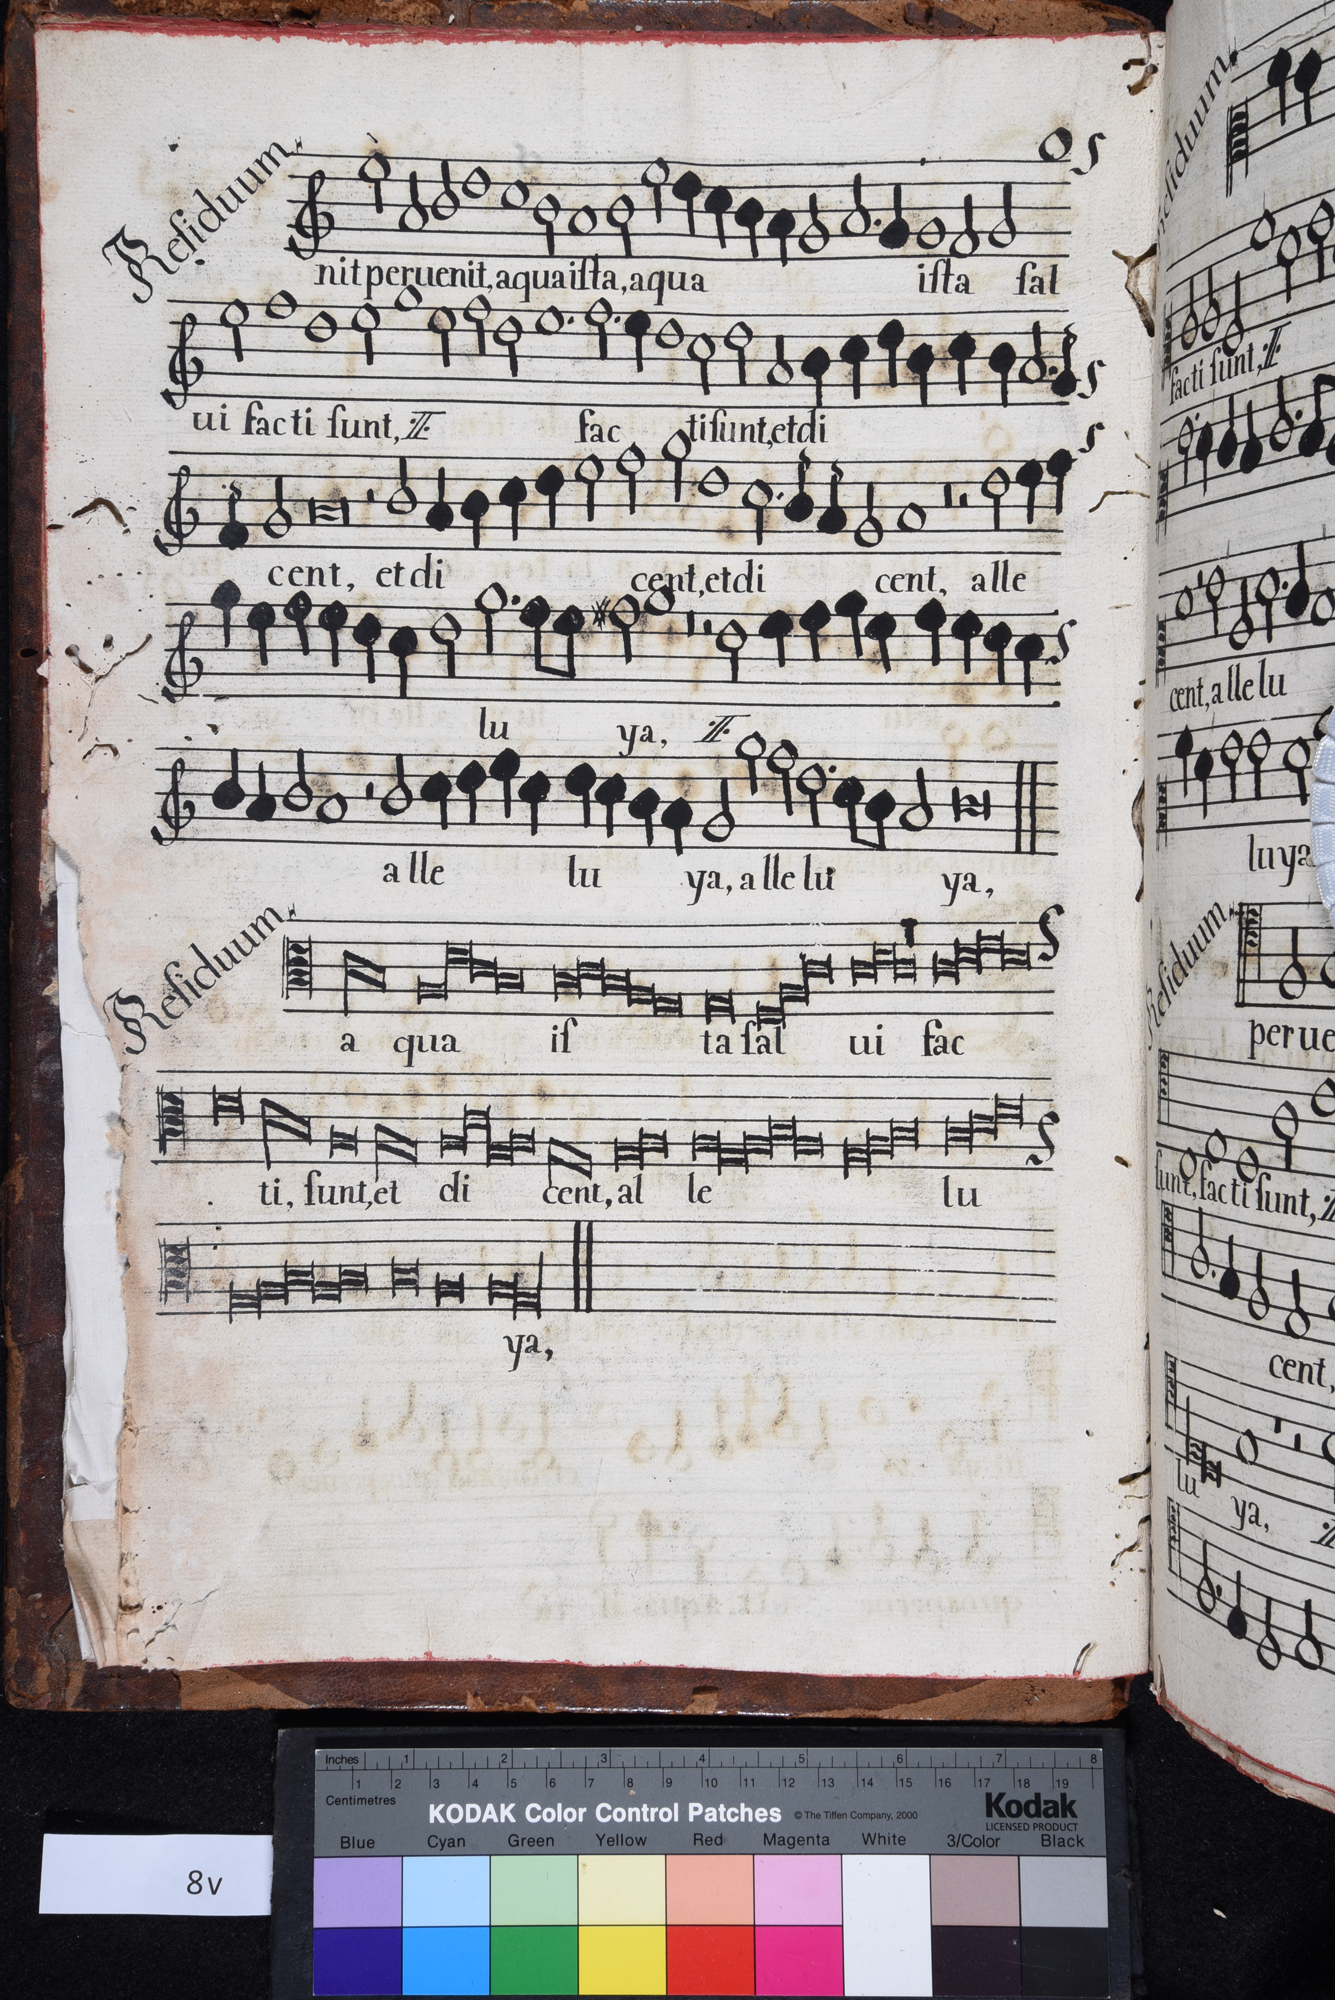 Residuum.
nit peruenit, aqua ista, aqua ista sal
ui facti sunt, :II: fac ti sunt, et di
cent, et di cent, et di cent, alle
lu ya, :II:
alle lu ya, alle lu ya,
Residuum.
a qua is ta sal ui fac
ti, sunt, et di cent, al le lu
ya,
Residuum.
facti sunt, :II:
cent, alle lu
lu ya
Residuum.
perue
sunt, facti sunt, :II:
cent,
lu ya,
8v
Inches 1 2 3 4 5 6 7 8
Centimetres 1 2 3 4 5 6 7 8 9 10 11 12 13 14 15 16 17 18 19
KODAK Color Control Patches © The Tiffen Company, 2000 Kodak
LICENSED PRODUCT
Blue Cyan Green Yellow Red Magenta White 3/Color Black